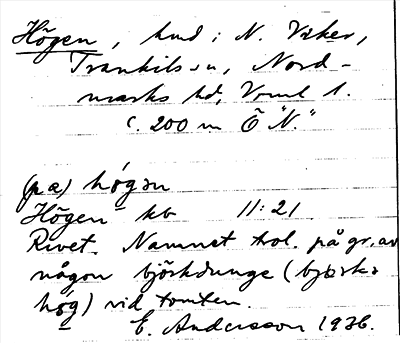 Högen, hmd i N. Viker,
Trankils sn, Nord-
marks hd, Vrml l.
c. 200 m Ö "N."
(pa) hógan
Högen kb 11:21
Rivet. Namnet trol. på gr. av
någon björkdunge (björk-
hög) vid tomten.
E. Andersson 1936.